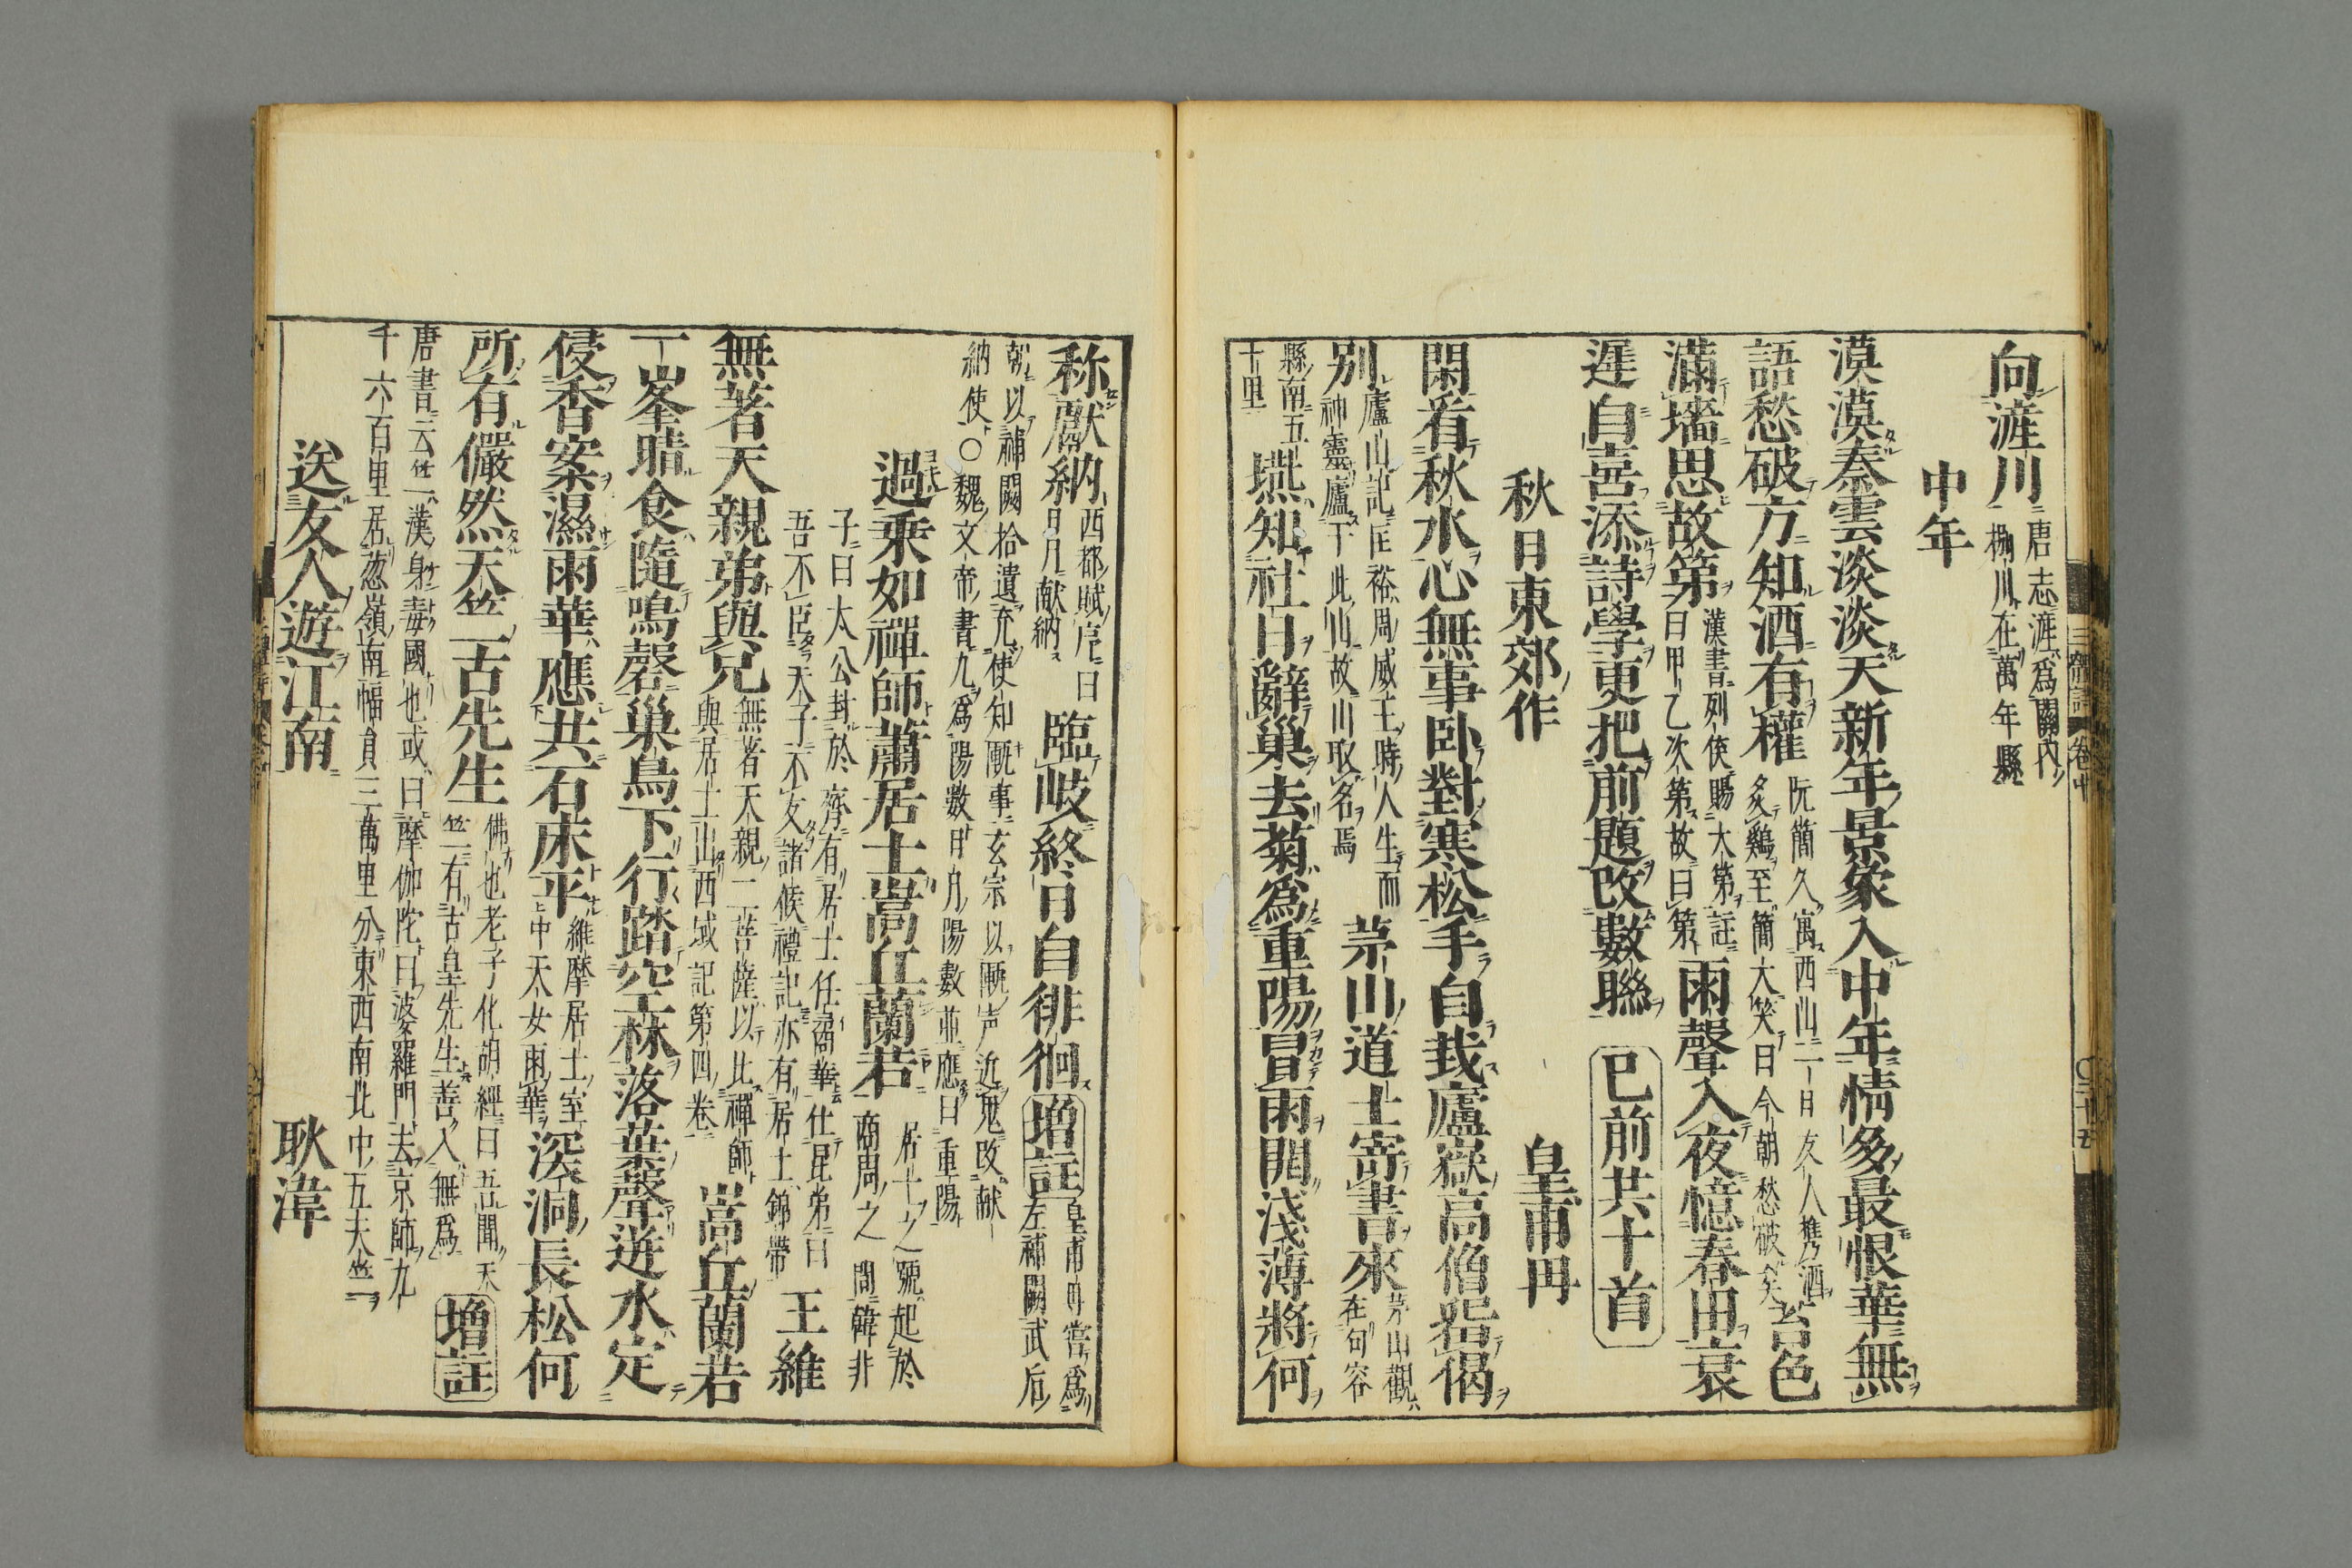 向滻川
唐志滻爲關内
在萬年縣
中年
漠漠秦雲淡淡天新年景象入中年情多最恨華無
語愁破方知酒有權
阮簡久寓西山一日友人携酒
炙鷄至簡大笑曰今朝愁破矣
苔色
滿墻思故第
漢書列侯賜大第註
曰甲乙次第故曰第
雨聲入夜憶春田衰
遲自喜添詩學更把前題改數聯
已前共十首
秋日東郊作
皇甫冉
閑看秋水心無事臥對寒松手自栽廬嶽高僧留偈
別
廬山記匡裕周威王時人生而
神靈廬于此山故山取名焉
茅山道士寄書來
茅山觀
在句容
縣南五
十里
燕知社日辭巢去菊爲重陽冒雨開淺薄將何
称獻納
西都賦序曰
日月献納
臨岐終日自徘徊
增註
皇甫冉嘗爲
左補闕武后
朝以補闕拾遺充使知匭事玄宗以匭声近鬼改献
納使○魏文帝書九爲陽數日月陽數並應曰重陽
過乗如禪師蕭居士嵩丘蘭若
居士之號起於
商周之間韓非
子曰太公封於齊有居士任矞華仕昆弟曰
吾不臣天子不友諸候禮記亦有居士錦帶
王維
無著天親弟與兄
無著天親二菩薩以比禪師
與居士西域記第四卷
嵩丘蘭若
一峯晴食隨鳴磬巢鳥下行踏空林落葉聲遊水定
侵香案濕雨華應共石床平
維摩居士室
中天女雨華
深洞長松何
所有儼然天竺古先生
佛也老子化胡經曰吾聞天
竺有古皇先生善入無爲
增註
唐書云天竺漢身毒國也或曰摩伽陀曰婆羅門去京師九
千六百里居葱嶺南幅員三萬里分東西南北中五天竺
送友人遊江南
耿湋
三體詩
卷中